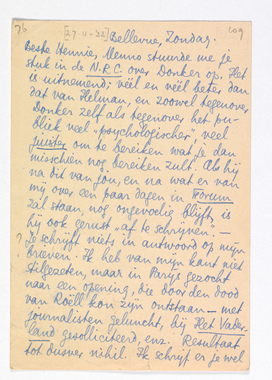 76 [27-11-32] 109
Bellevue, Zondag.
Beste Hennie, Menno stuurde me je
stuk in de N.R.C. over Donker op. Het
is uitnemend; véél en véél beter dan
dat van Helman, en zoowel tegenover
Donker zelf als tegenover het pu-
bliek veel "psychologischer", veel
juister om te bereiken wat je dan
misschien nog bereiken zult. Als hij
na dit van jou, en na wat er van
mij over een paar dagen in Forum
zal staan, nog ongevoelig blijft, is
hij ook gerust "af te schrijven". —
? Je schrijft niets in antwoord op mijn
brieven. Ik heb van mijn kant niet
stilgezeten, maar in Parijs gezocht
naar een opening, die door den dood
van Roëll kon zijn ontstaan — met
journalisten geluncht, bij Het Vader-
land gesolliciteerd, enz. Resultaat
tot dusver nihil. Ik schrijf er je wel